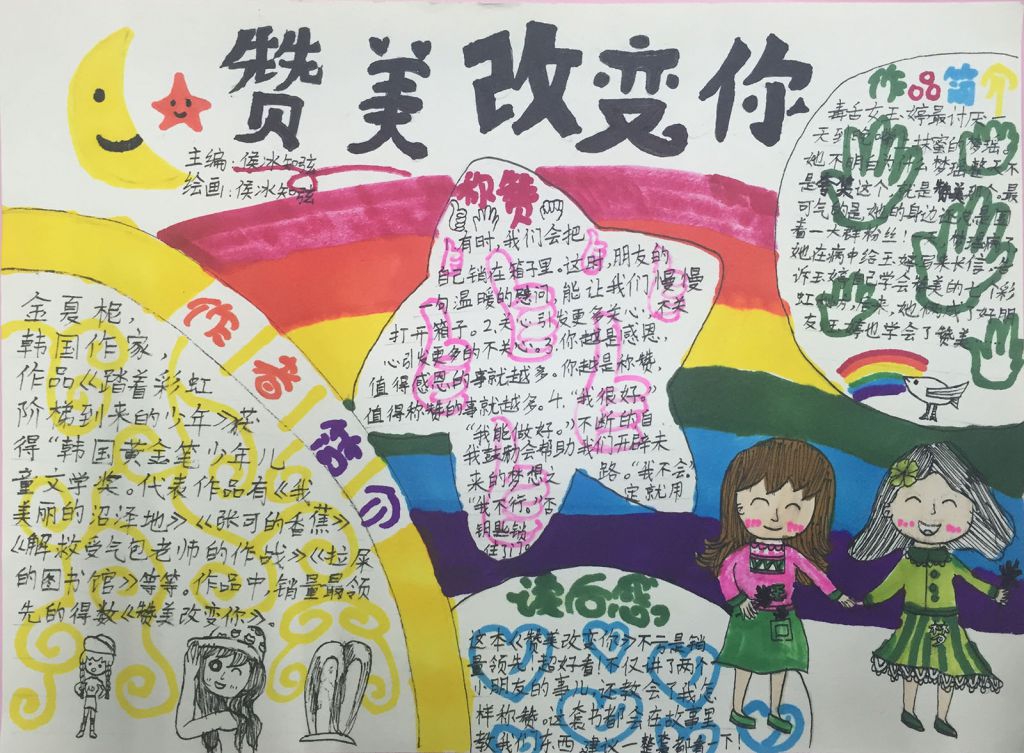 赞美改变你
主编:侯冰知弦
绘画:侯冰知弦
作品简介
毒舌女王婷最讨厌
她不明白为什么梦瑶整天不
可气的是,她的身边还总是围
着一大群粉丝!
她在病中给王婷写来长信,告
诉王婷自己学会赞美的七个彩
友王婷也学会了赞美
称赞
有时,我们会把
自己锁在箱子里。这时,朋友的
一句温暖的慰问,能让我们慢慢
打开箱子。2.关心引发更多关心,不关
心引发更多的不关心。3.你越是感恩,
值得感恩的事就越多。你越是称赞,
值得称赞的事就越多。4.“我很好。”
“我能做好。”不断的自
我鼓励会帮助我们开辟未
来的梦想之路。“我不会”
“我不行。”它就用
钥匙锁
住了门。
作者简介
金夏柜,
韩国作家,
作品《踏着彩虹
阶梯到来的少年》获
得“韩国黄金笔少年儿
童文学奖。代表作品有《我
美丽的沼泽地》《张可的香蕉》
《解救受气包老师的作战》《拉屎
的图书馆》等等。作品中,销量最领
先的得数《赞美改变你》。
读后感
这本《赞美改变你》不亏是销
量领先,超好看!不仅讲了两个
小朋友的事儿,还教会了我怎
样称赞。这套书都会在故事里
教我们东西,建议一整套都看一下!